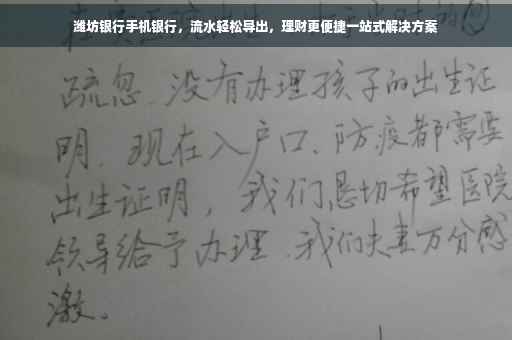 潍坊银行手机银行，流水轻松导出，理财更便捷一站式解决方案
疏忽、没有办理孩子的出生证
明、现在入户口、防疫都需要
出生证明，我们恳切希望医院
领导给予办理、我们夫妻万分感
激。